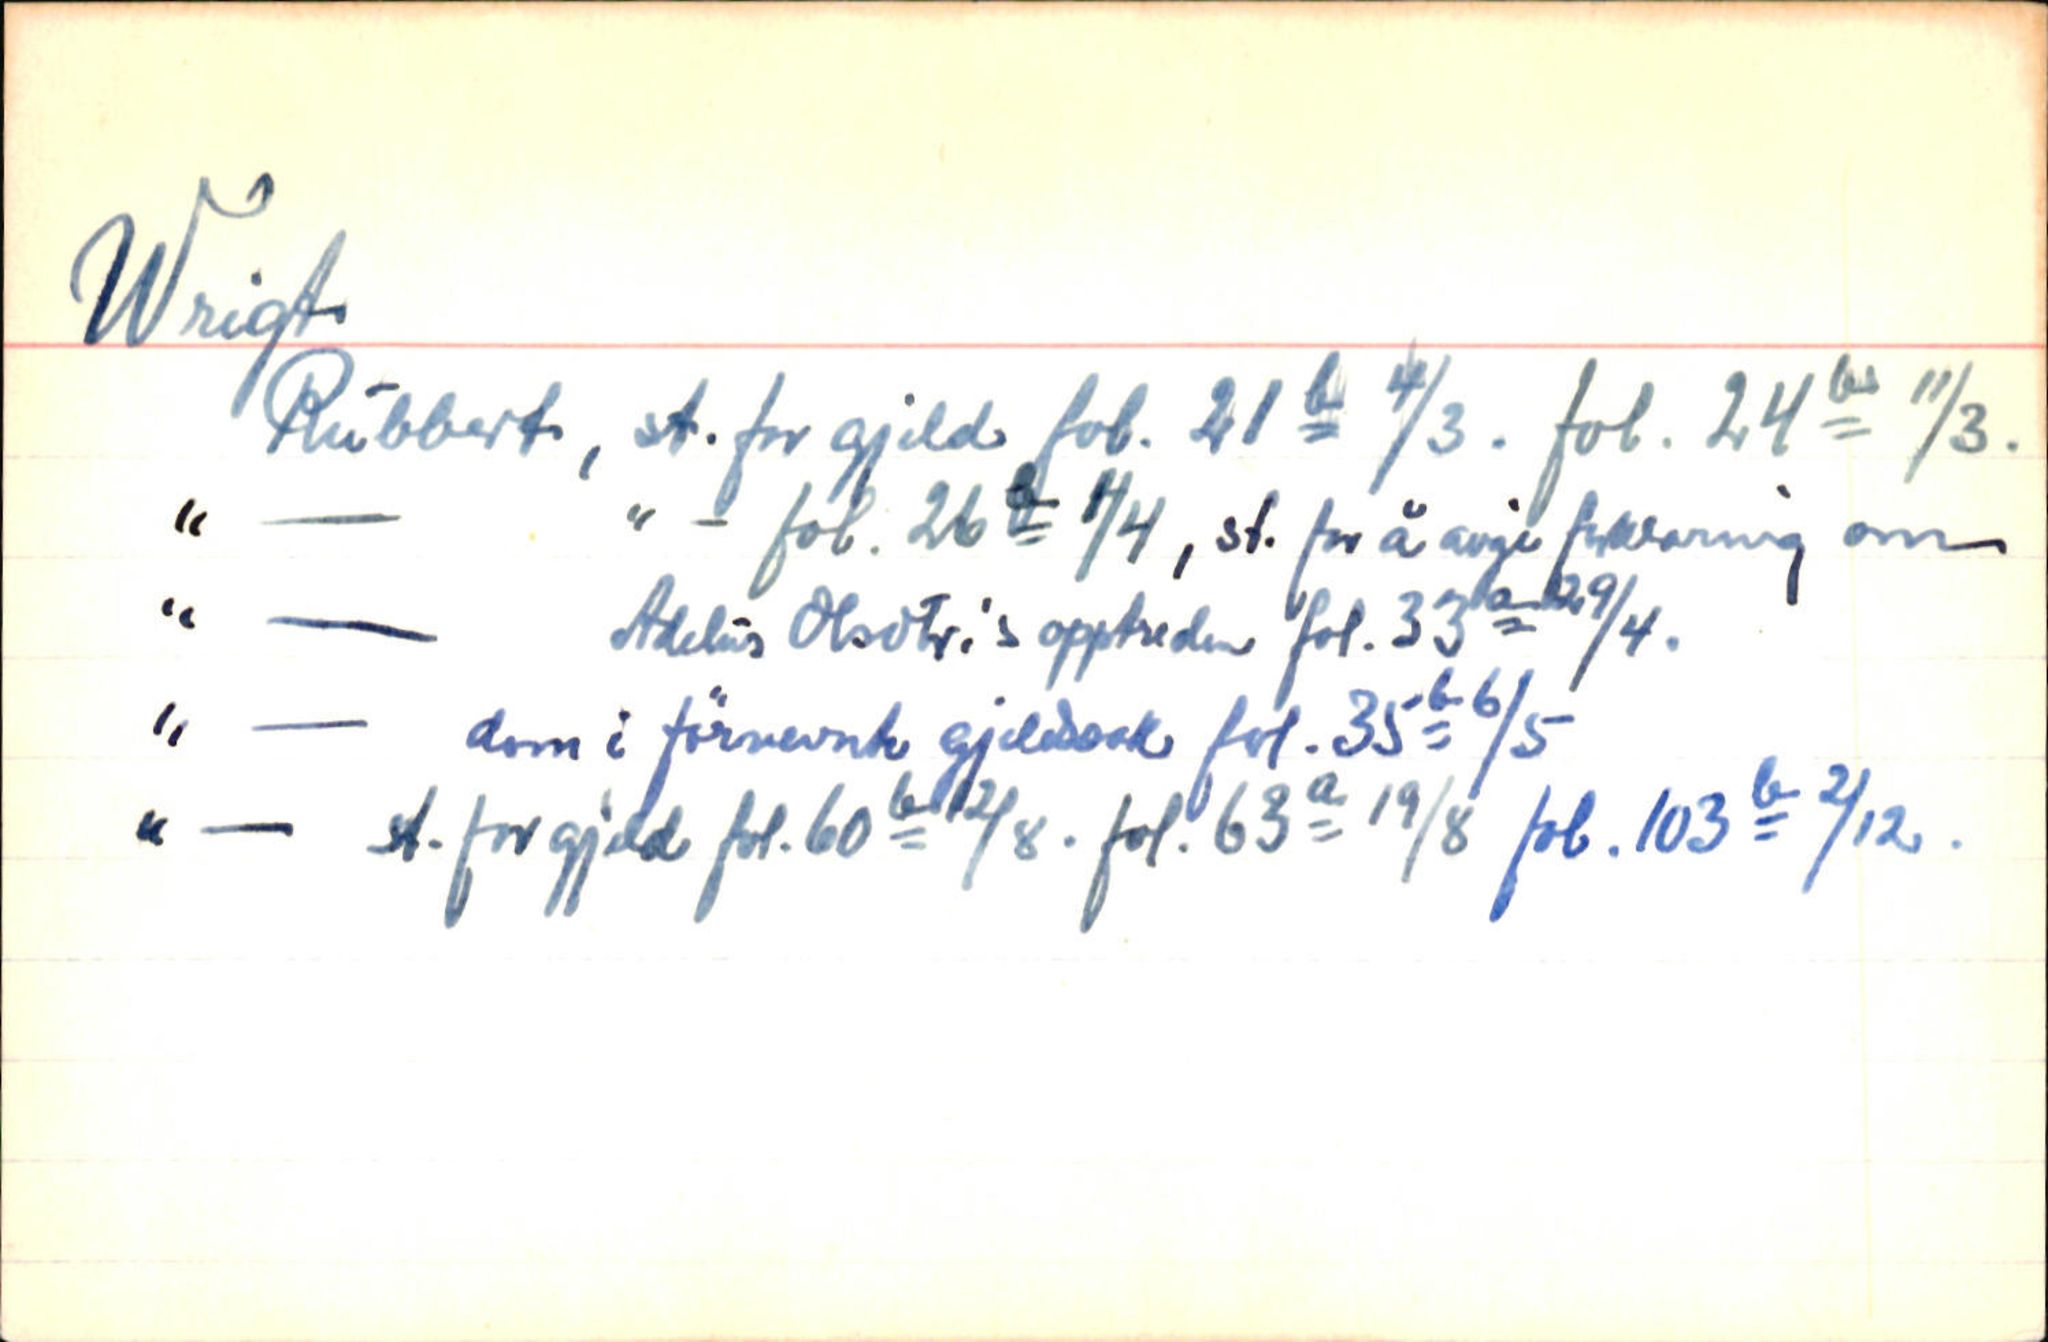 Wrigt
Rūbbert, st. for gjeld fol. 21 b 4/3. fol. 24 b 11/3.
" — " - fol. 26 1/4, st. for å avgi forklaring om
" — Adelūs Olsdtr.'s opptreden fol. 33 a 29/4.
" — dom i förnevnte gjeldssak fol. 35 b 6/5
" — st. for gjeld fol. 60 b 12/8. fol. 63 a 19/8 fol. 103 b 2/12.